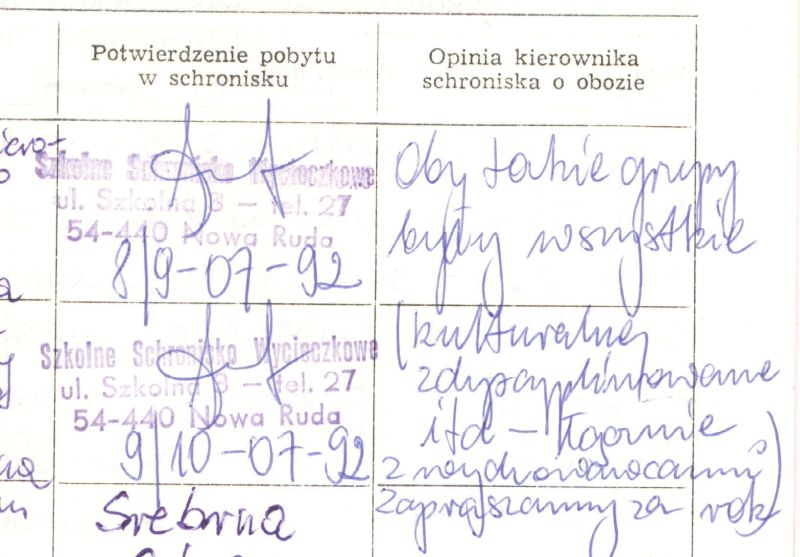 Potwierdzenie pobytu
w schronisku
Opinia kierownika
schroniska o obozie
Szkolne Schronisko Wycieczkowe
ul. Szkolna 3 — tel. 27
54-440 Nowa Ruda
8/9-07-92
Oby takie grupy
były wszystkie
Szkolne Schronisko Wycieczkowe
ul. Szkolna 3 — tel. 27
54-440 Nowa Ruda
9/10-07-92
(kulturalne,
zdyscyplinowane
itd – łącznie
z wychowawcami)
zapraszamy za rok
Srebrna